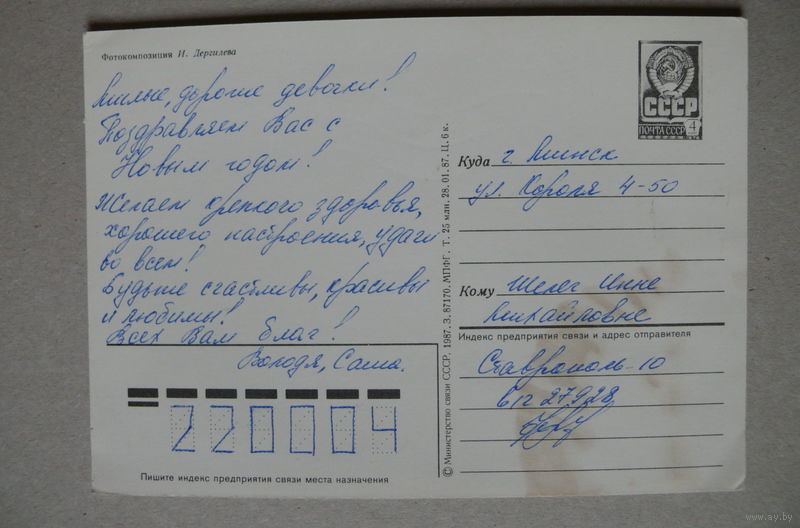 Фотокомпозиция И. Дергилева
Милые, дорогие девочки!
Поздравляем Вас с
Новым годом!
Желаем крепкого здоровья,
хорошего настроения, удачи
во всем!
Будьте счастливы, красивы
и любимы!
Всех Вам благ!
Володя, Саша.
220004
Пишите индекс предприятия связи места назначения
© Министерство связи СССР, 1987. З. 87170. МПФГ. Т. 25 млн. 28.01.87. Ц. 6 к.
СССР
ПОЧТА СССР 4
Куда г. Минск
ул. Короля 4-50
Кому Шелег Инне
Михайловне
Индекс предприятия связи и адрес отправителя
Ставрополь-10
в/ч 27928
www.ay.by